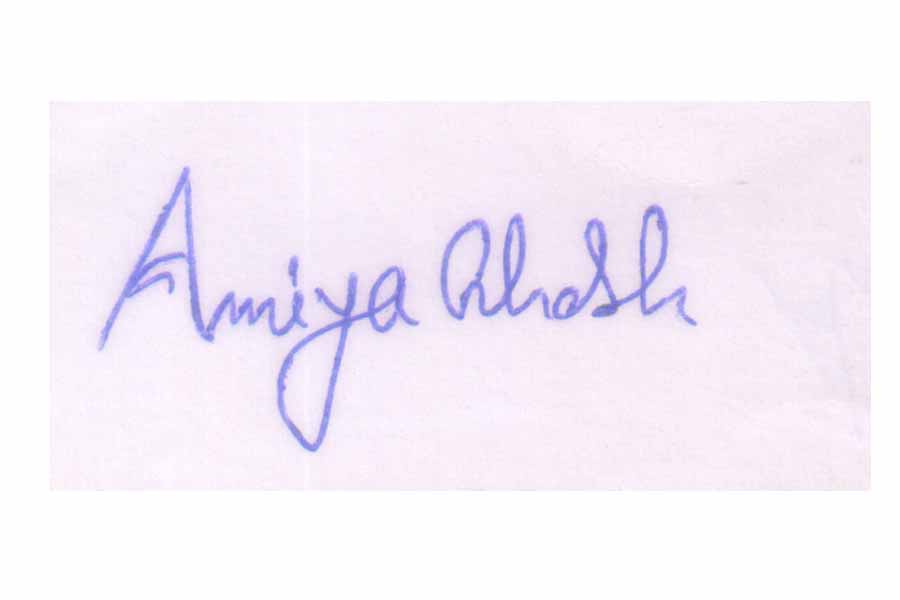 Amiya Ghosh